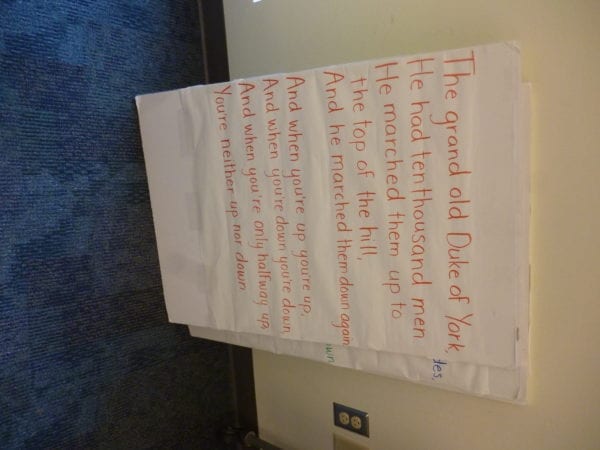 The grand old Duke of York,
He had ten thousand men
He marched them up to
the top of the hill,
And he marched them down again
And when you're up you're up,
And when you're down you're down,
And when you're only halfway up
You're neither up nor down